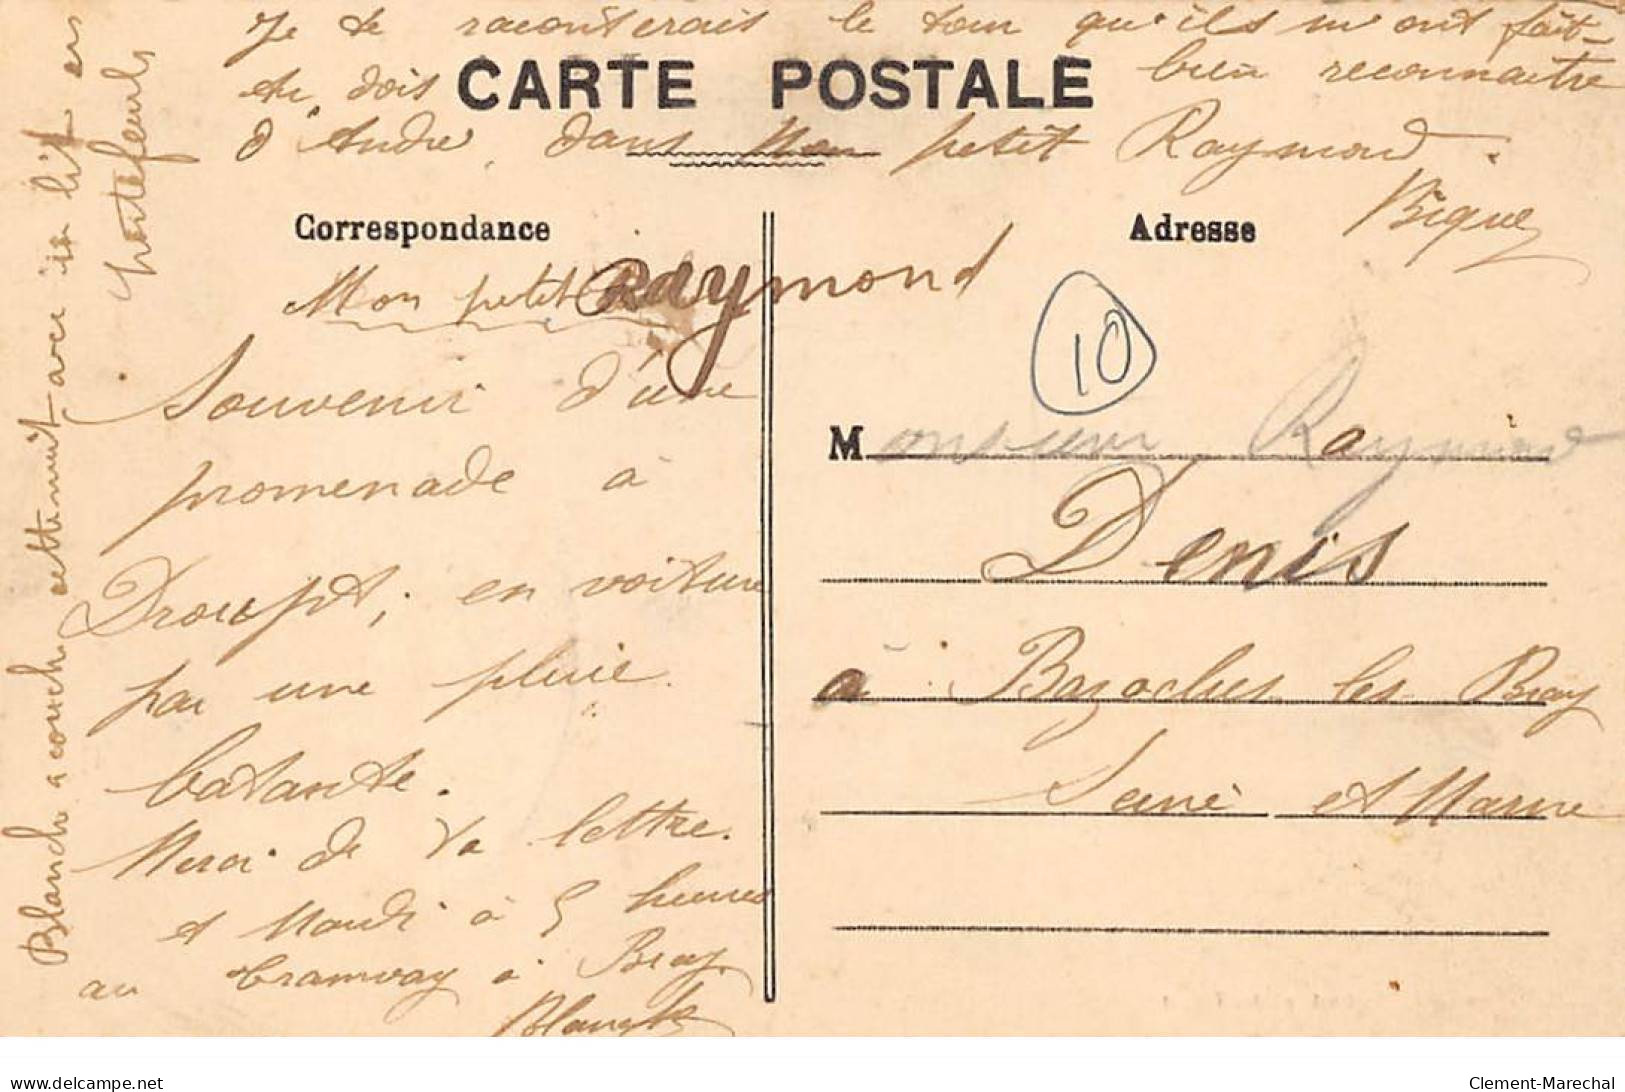 Je te raconterais le tour qu'ils m'ont fait
tu dois bien reconnaitre
CARTE POSTALE
d'André, dans mon petit Raymond.
Bique
Correspondance
Adresse
Mon petit Raymond
Souvenir d'une
promenade à
Droupt, en voiture
par une pluie
batante.
Merci de ta lettre.
A Mardi à 5 heures
au tramway à Bray
Blanche
Blanche a couché cette nuit avec i lit en
portefeuils
10
Monsieur Raymond
Denis
à Bazoches les Bray
Seine et Marne
Clement-Marechal
delcampe.net